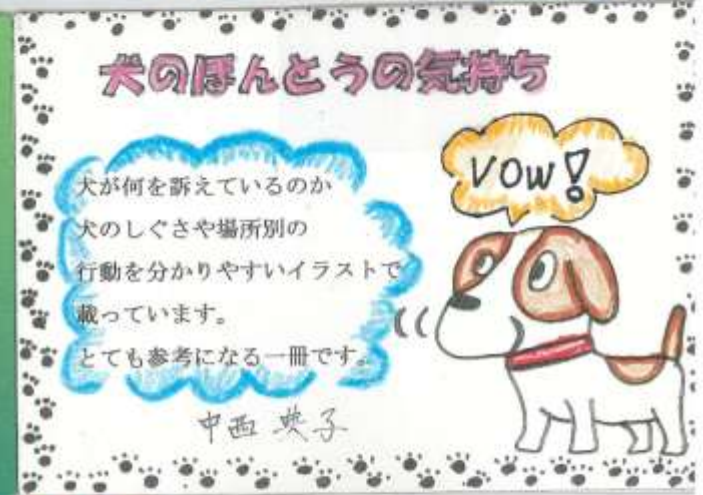 犬のほんとうの気持ち
VOW!
犬が何を訴えているのか
犬のしぐさや場所別の
行動を分かりやすいイラストで
載っています。
とても参考になる一冊です。
中西 典子